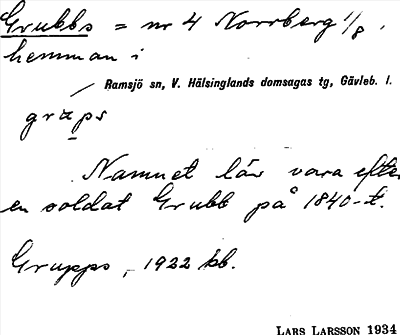 Grubbs = nr 4 Norrberg 1/8,
hemman i
Ramsjö sn, V. Hälsinglands domsagas tg, Gävleb. l.
Namnet lär vara efter
en soldat Grubb på 1840-t.
Grupps, 1922 kb.
LARS LARSSON 1934